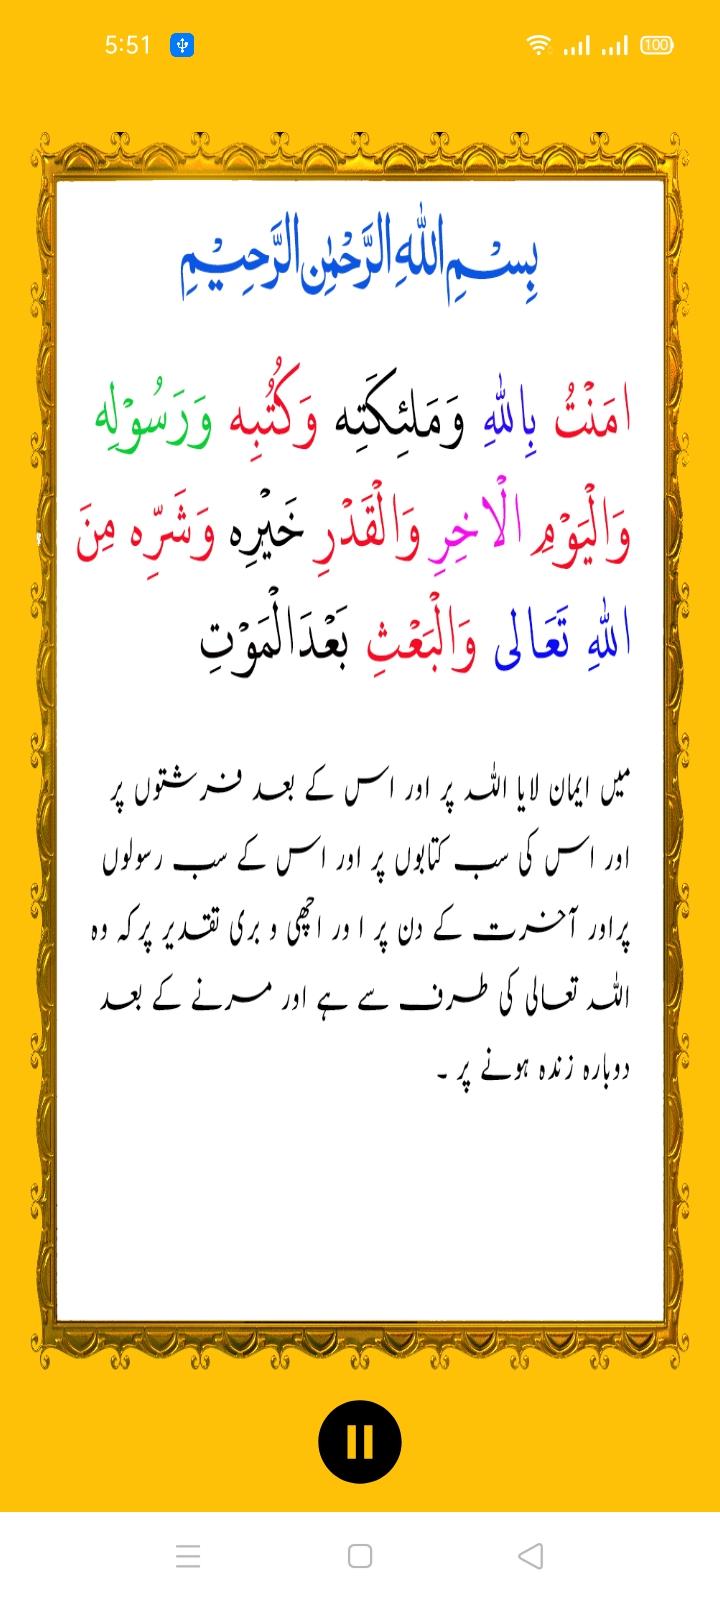 5:51
100
بِسْمِ اللهِ الرَّحْمٰنِ الرَّحِيْمِ
امَنْتُ بِاللهِ وَمَلئِكَتِه وَكُتُبِه وَرَسُوْلِه
وَالْيَوْمِ الْاخِرِ وَالْقَدْرِ خَيْرِه وَشَرِّه مِنَ
اللهِ تَعَالى وَالْبَعْثِ بَعْدَالْمَوْتِ
میں ایمان لایا اللہ پر اور اس کے بعد فرشتوں پر
اور اس کی سب کتابوں پر اور اس کے سب رسولوں
پراور آخرت کے دن پر ا ور اچھی و بری تقدیر پر کہ وہ
اللہ تعالی کی طرف سے ہے اور مرنے کے بعد
دوبارہ زندہ ہونے پر ۔